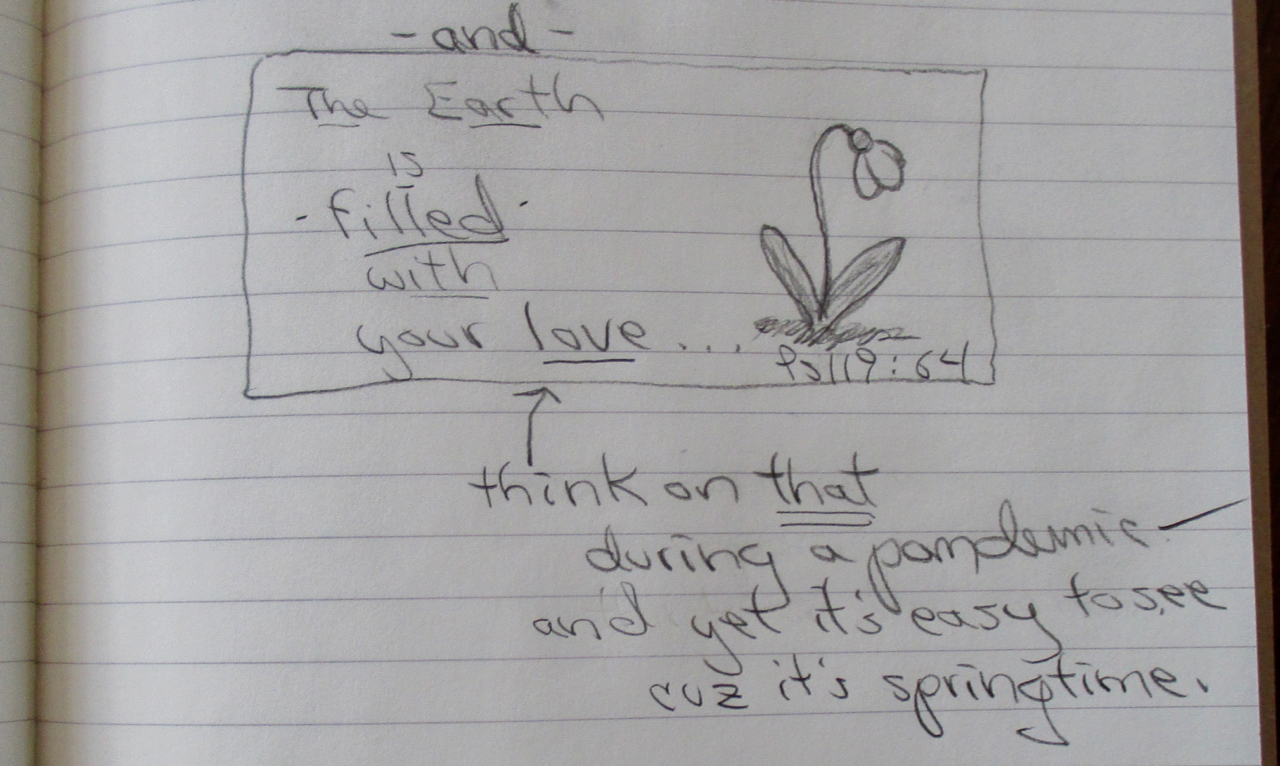 - and -
The Earth
is
- filled -
with
your love ...
Ps 119:64
think on that
during a pandemic —
and yet it's easy to see
cuz it's springtime.